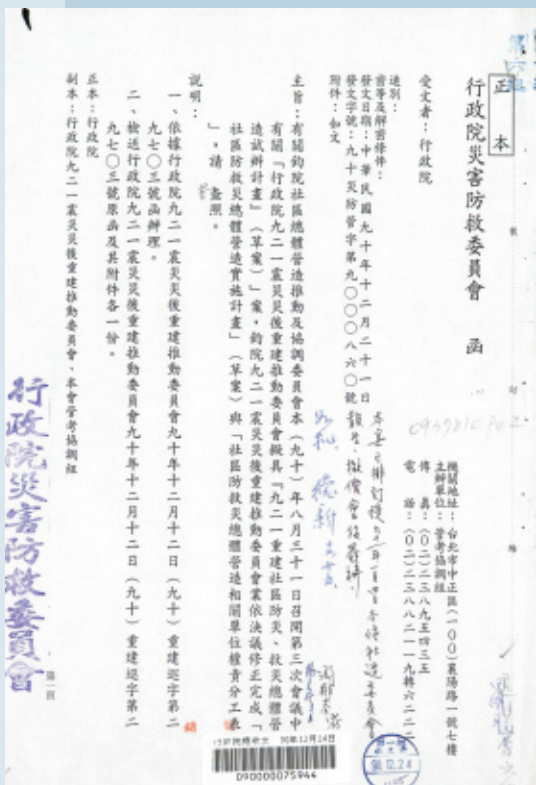 正本
行政院災害防救委員會　函
機關地址：台北市中正區（一００）襄陽路一號七樓
主辦單位：管考協調組
傳　真：（０二）二三八九五四三五
電　話：（０二）二三八八二一一九轉六二二二
受文者：行政院
速別：
密等及解密條件：
發文日期：中華民國九十年十二月二十一日
發文字號：九十災防管字第九０００八六０號
附件：如文
主旨：有關鈞院社區總體營造推動及協調委員會本（九十）年八月三十一日召開第三次會議中
有關「行政院九二一震災災後重建推動委員會擬具「九二一重建社區防災、救災總體營
造試辦計畫」（草案）」案，鈞院九二一震災災後重建推動委員會業依決議修正完成「
社區防救災總體營造實施計畫」（草案）與「社區防救災總體營造相關單位權責分工表
」，請　查照。
說明：
一、依據行政院九二一震災災後重建推動委員會九十年十二月十二日（九十）重建巡字第二
九七０三號函辦理。
二、檢送行政院九二一震災災後重建推動委員會九十年十二月十二日（九十）重建巡字第二
九七０三號原函及其附件各一份。
正本：行政院
副本：行政院九二一震災災後重建推動委員會、本會管考協調組
行政院災害防救委員會
第一頁
行政院總收文　90年12月24日
090000075944
90.12.24